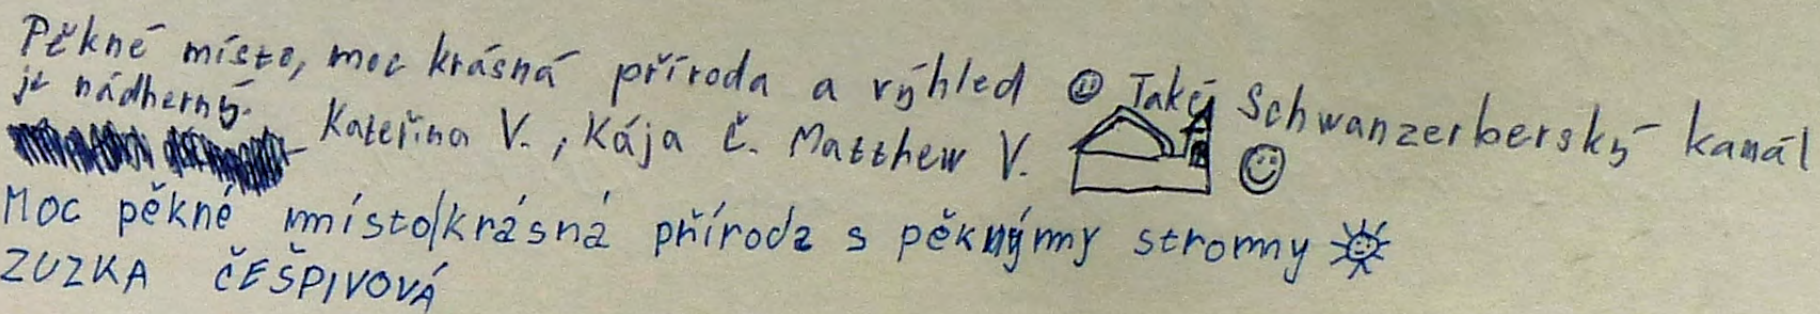 Pěkné místo, moc krásná příroda a výhled ☺ Také Schwanzerberský kanál
je nádherný.
Kateřina V., Kája Č. Matthew V.
Moc pěkné místo/krásná příroda s pěknýmy stromy
ZUZKA ČEŠPIVOVÁ